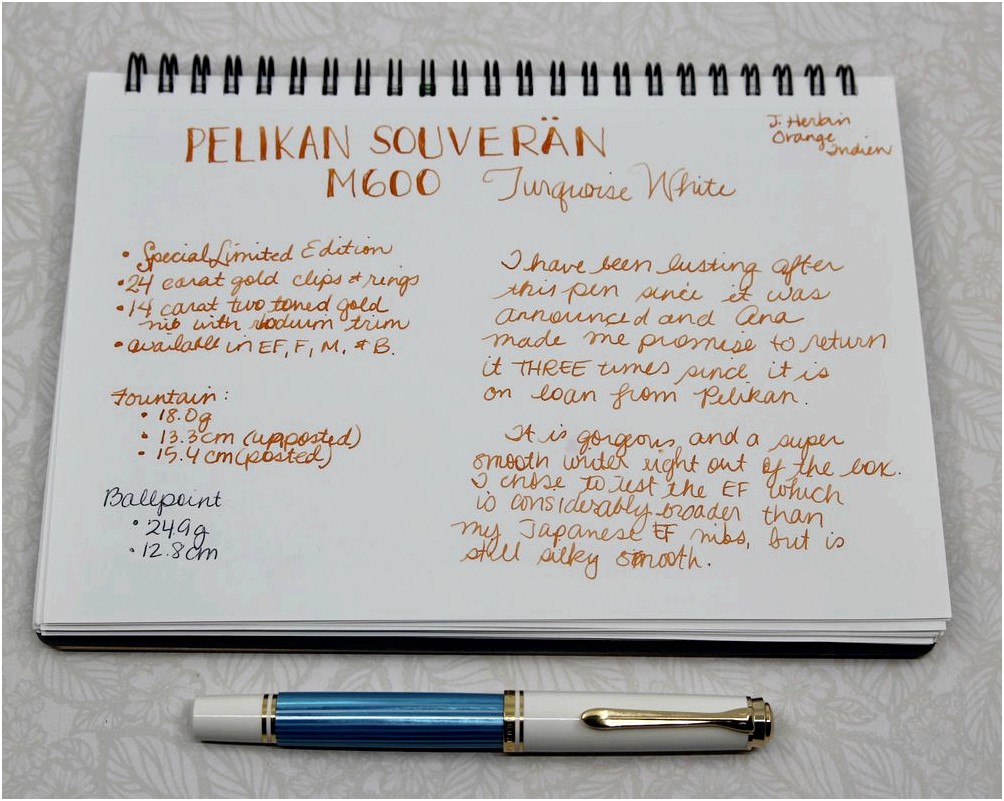 PELIKAN SOUVERÄN
M600 Turquoise White
J. Herbin
Orange
Indien
• Special Limited Edition
• 24 carat gold clips & rings
• 14 carat two toned gold
nib with rhodium trim
• available in EF, F, M, & B.
Fountain:
• 18.0g
• 13.3cm (unposted)
• 15.4 cm (posted)
Ballpoint
• 24.9g
• 12.8cm
I have been lusting after
this pen since it was
announced and Ana
made me promise to return
it THREE times since it is
on loan from Pelikan.
It is gorgeous, and a super
smooth writer right out of the box.
I chose to test the EF which
is considerably broader than
my Japanese EF nibs, but is
still silky smooth.